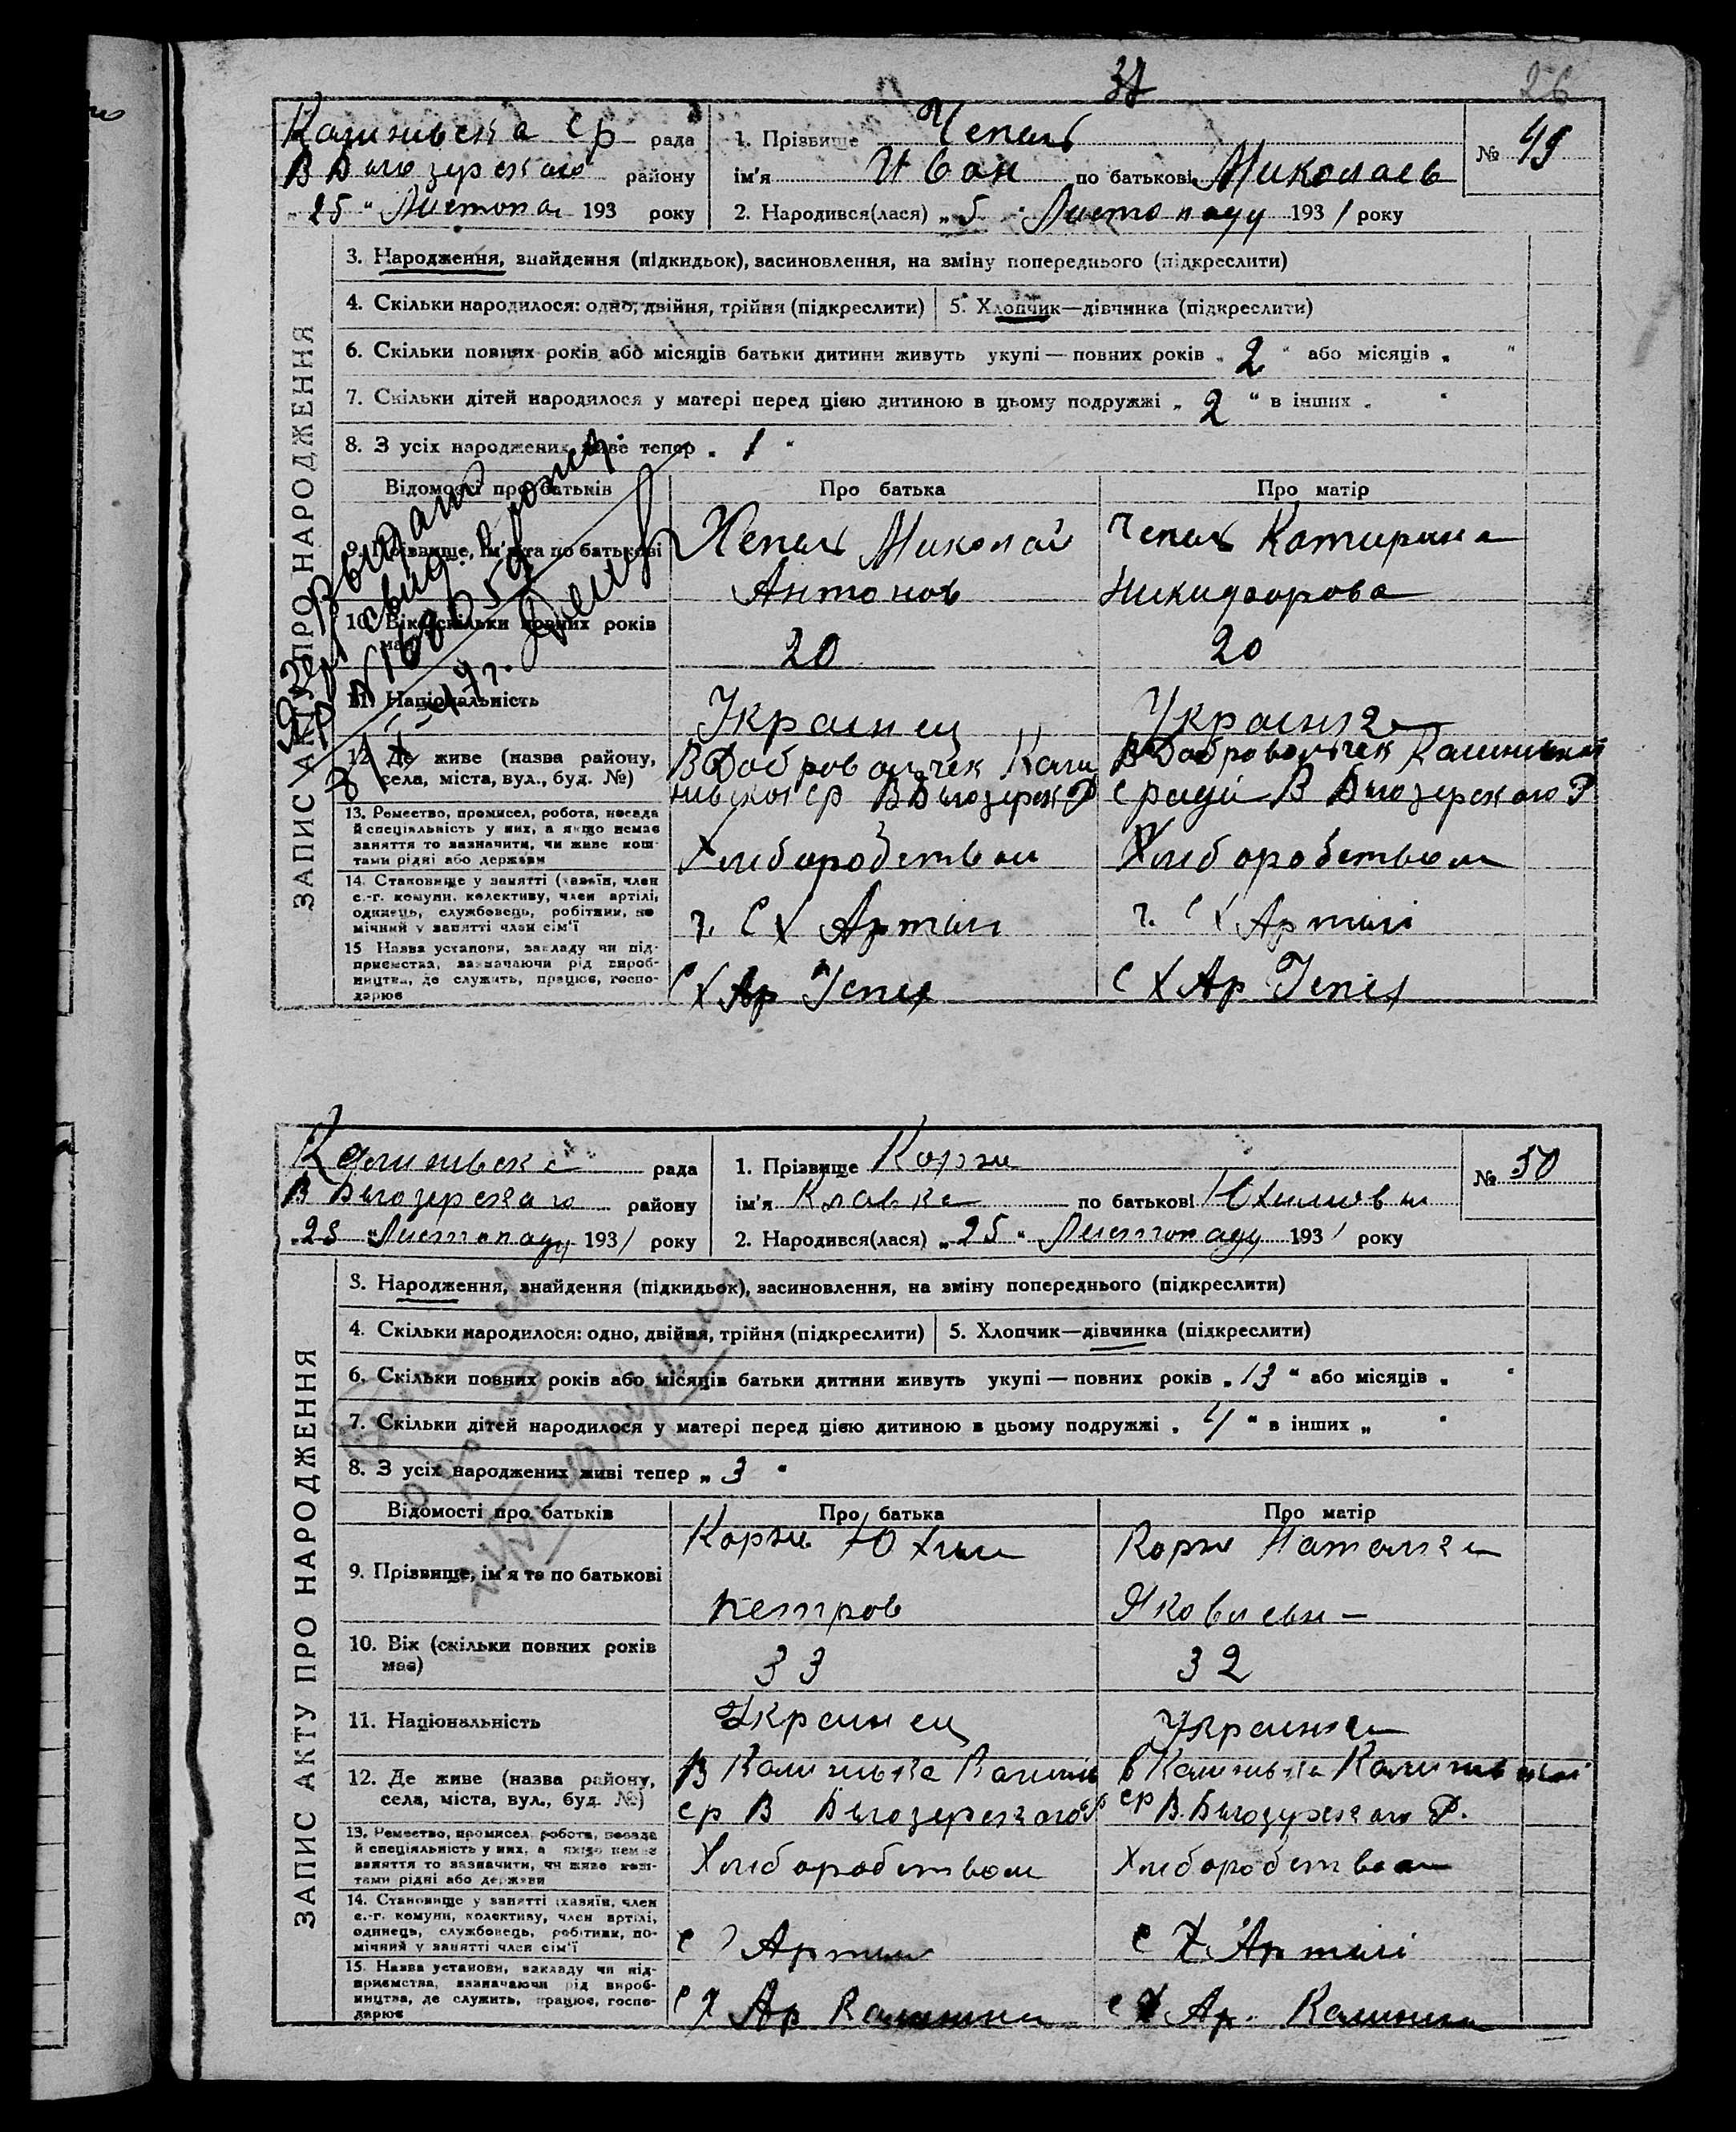 26
Калинивска ср рада
В Билозерского району
"25" Листопа 193 року
1. Прізвище Чепель
ім'я Иван по батькові Миколаев
2. Народився(лася) „5" Листопаду 1931 року
№ 49
ЗАПИС АКТУ ПРО НАРОДЖЕННЯ
3. Народження, знайдення (підкидьок), засиновлення, на зміну попереднього (підкреслити)
4. Скільки народилося: одно, двійня, трійня (підкреслити)
5. Хлопчик—дівчинка (підкреслити)
6. Скільки повних років або місяців батьки дитини живуть укупі — повних років „2" або місяців „ "
7. Скільки дітей народилося у матері перед цією дитиною в цьому подружжі „2" в інших „ "
8. З усіх народжених живе тепер „1"
Відомості про батьків
Про батька
Про матір
9. Прізвище, ім'я та по батькові
Чепель Миколай
Антонов
Чепель Катирина
Никидфорова
10. Вік (скільки повних років має)
20
20
11. Національність
Украинец
Украинка
12. Де живе (назва району,
села, міста, вул., буд. №)
В Добровольчек Кали
нивской ср В Билозерск Р
В Добровольчек Калинивской
сради В Билозерского Р
13. Ремество, промисел, робота, посада
й спеціяльність у них, а якщо немає
заняття то зазначити, чи живе кош-
тами рідні або держави
Хлиборобством
Хлиборобством
14. Становище у занятті (хазяїн, член
с.-г. комуни, колективу, член артілі,
одинець, службовець, робітник, по
мічний у занятті член сім'ї
ч. СХ Артили
ч. СХ Артилі
15 Назва установи, закладу чи під-
приємства, зазначаючи рід вироб-
ництва, де служить, працює, госпо-
дарює
СХ Ар Успех
СХ Ар Успіх
Калинивска рада
В Билозерского району
"25" Листопаду 1931 року
1. Прізвище Корж
ім'я Клавка по батькові Юхимовна
2. Народився(лася) „25" Листопаду 1931 року
№ 50
ЗАПИС АКТУ ПРО НАРОДЖЕННЯ
3. Народження, знайдення (підкидьок), засиновлення, на зміну попереднього (підкреслити)
4. Скільки народилося: одно, двійня, трійня (підкреслити)
5. Хлопчик—дівчинка (підкреслити)
6. Скільки повних років або місяців батьки дитини живуть укупі — повних років „13" або місяців „ "
7. Скільки дітей народилося у матері перед цією дитиною в цьому подружжі „4" в інших „ "
8. З усіх народжених живі тепер „3"
Відомості про батьків
Про батька
Про матір
9. Прізвище, ім'я та по батькові
Корж Юхим
петров
Корж Наталка
Яковлевн-
10. Вік (скільки повних років
має)
33
32
11. Національність
Украинец
Украинка
12. Де живе (назва району,
села, міста, вул., буд. №)
В Калинивка Калинив
ср В Билозерского Р
В Калинивка Калинивской
ср В. Билозерского Р.
13. Ремество, промисел, робота, посада
й спеціяльність у них, а якщо немає
заняття то зазначити, чи живе кош-
тами рідні або держави
Хлиборобством
Хлиборобством
14. Становище у занятті (хазяїн, член
с.-г. комуни, колективу, член артілі,
одинець, службовець, робітник, по-
мічний у занятті член сім'ї
С Артили
С Х Артилі
15. Назва установи, закладу чи під-
приємства, зазначаючи рід вироб-
ництва, де служить, працює, госпо-
дарює
СХ Ар Калинина
СХ Ар. Калинина